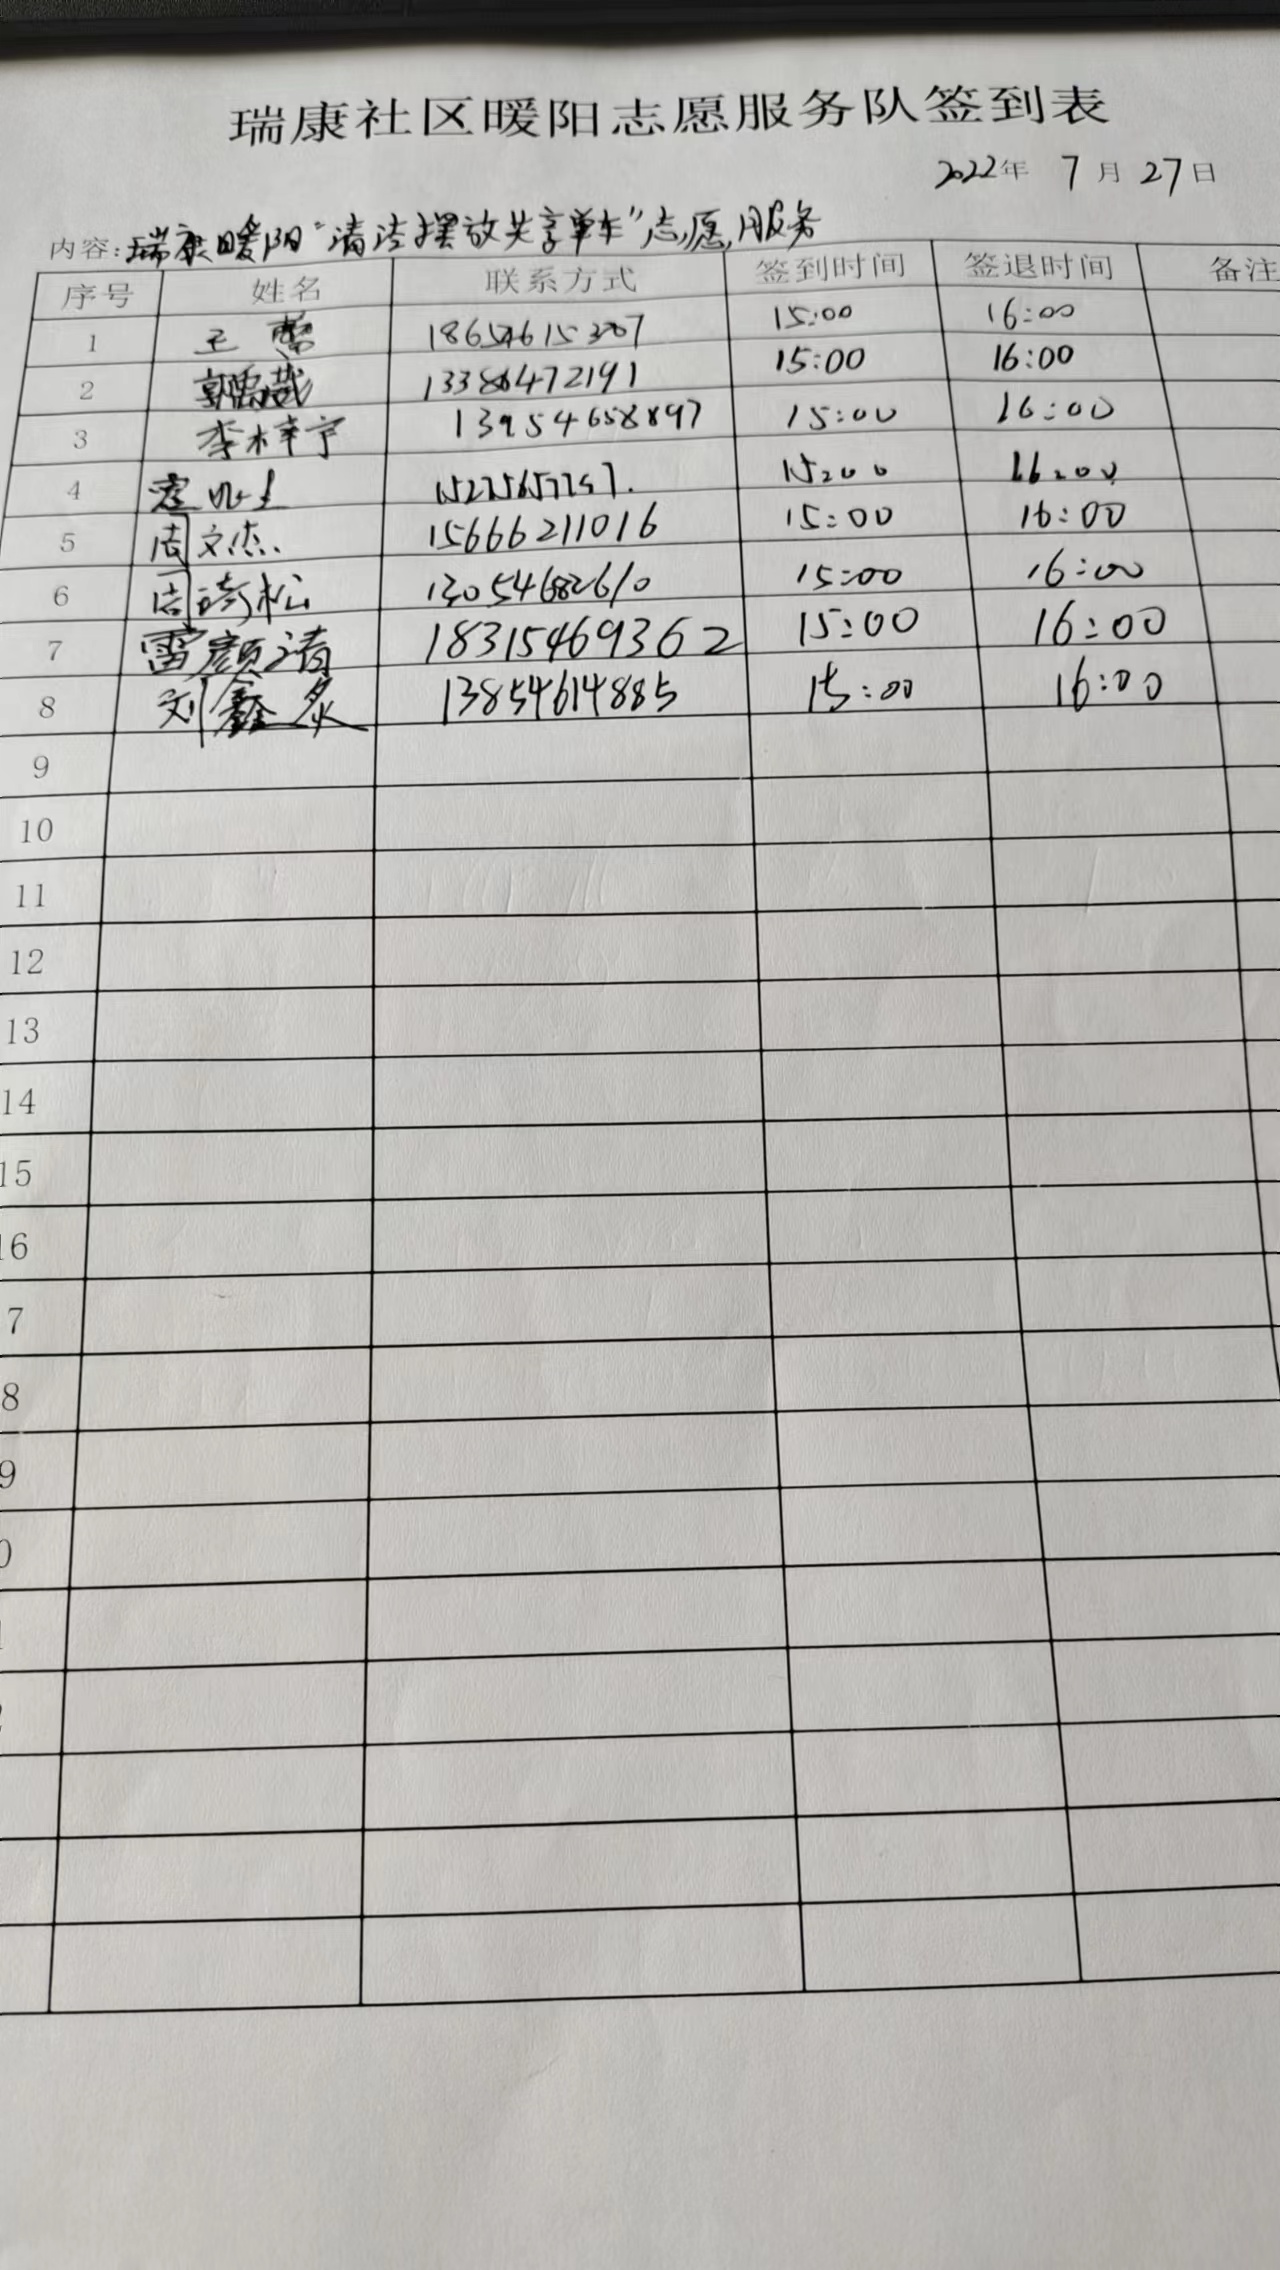 瑞康社区暖阳志愿服务队签到表
2022年 7月27日
内容:瑞康暖阳“清洁摆放共享单车”志愿服务
序号 姓名 联系方式 签到时间 签退时间 备注
1 王 15:00 16:00
2 15:00 16:00
3 李梓宁 13954658897 15:00 16:00
4 15:00 16:00
5 周文杰 15666211016 15:00 16:00
6 周琦松 13054682610 15:00 16:00
7 雷颜清 18315469362 15:00 16:00
8 刘鑫炙 13854614885 15:00 16:00
9
10
11
12
13
14
15
16
7
8
9
0